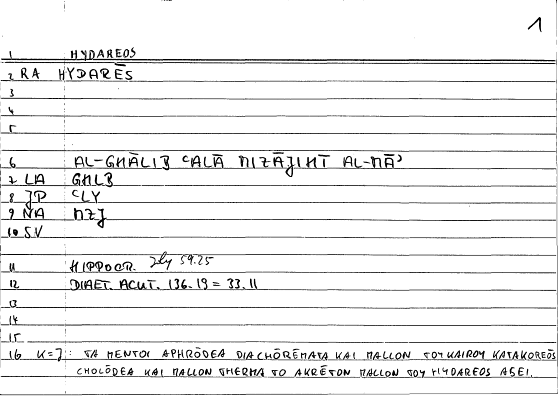 1
1 HYDAREOS
2 RA HYDARĒS
3
4
5
6 AL-GHĀLIB ʿALĀ MIZĀJIHĪ AL-MĀʾ
7 LA GHLB
8 JP ʿLY
9 NA MZJ
10 SV
11 HIPPOCR. 59.25
12 DIAET. ACUT. 136.19 = 33.11
13
14
15
16 K=J: TA MENTOI APHRŌDEA DIACHŌRĒMATA KAI MALLON TOY KAIROY KATAKOREŌS
CHOLŌDEA KAI MALLON THERMA TO AKRĒTON MALLON TOY HYDAREOS ASEI.